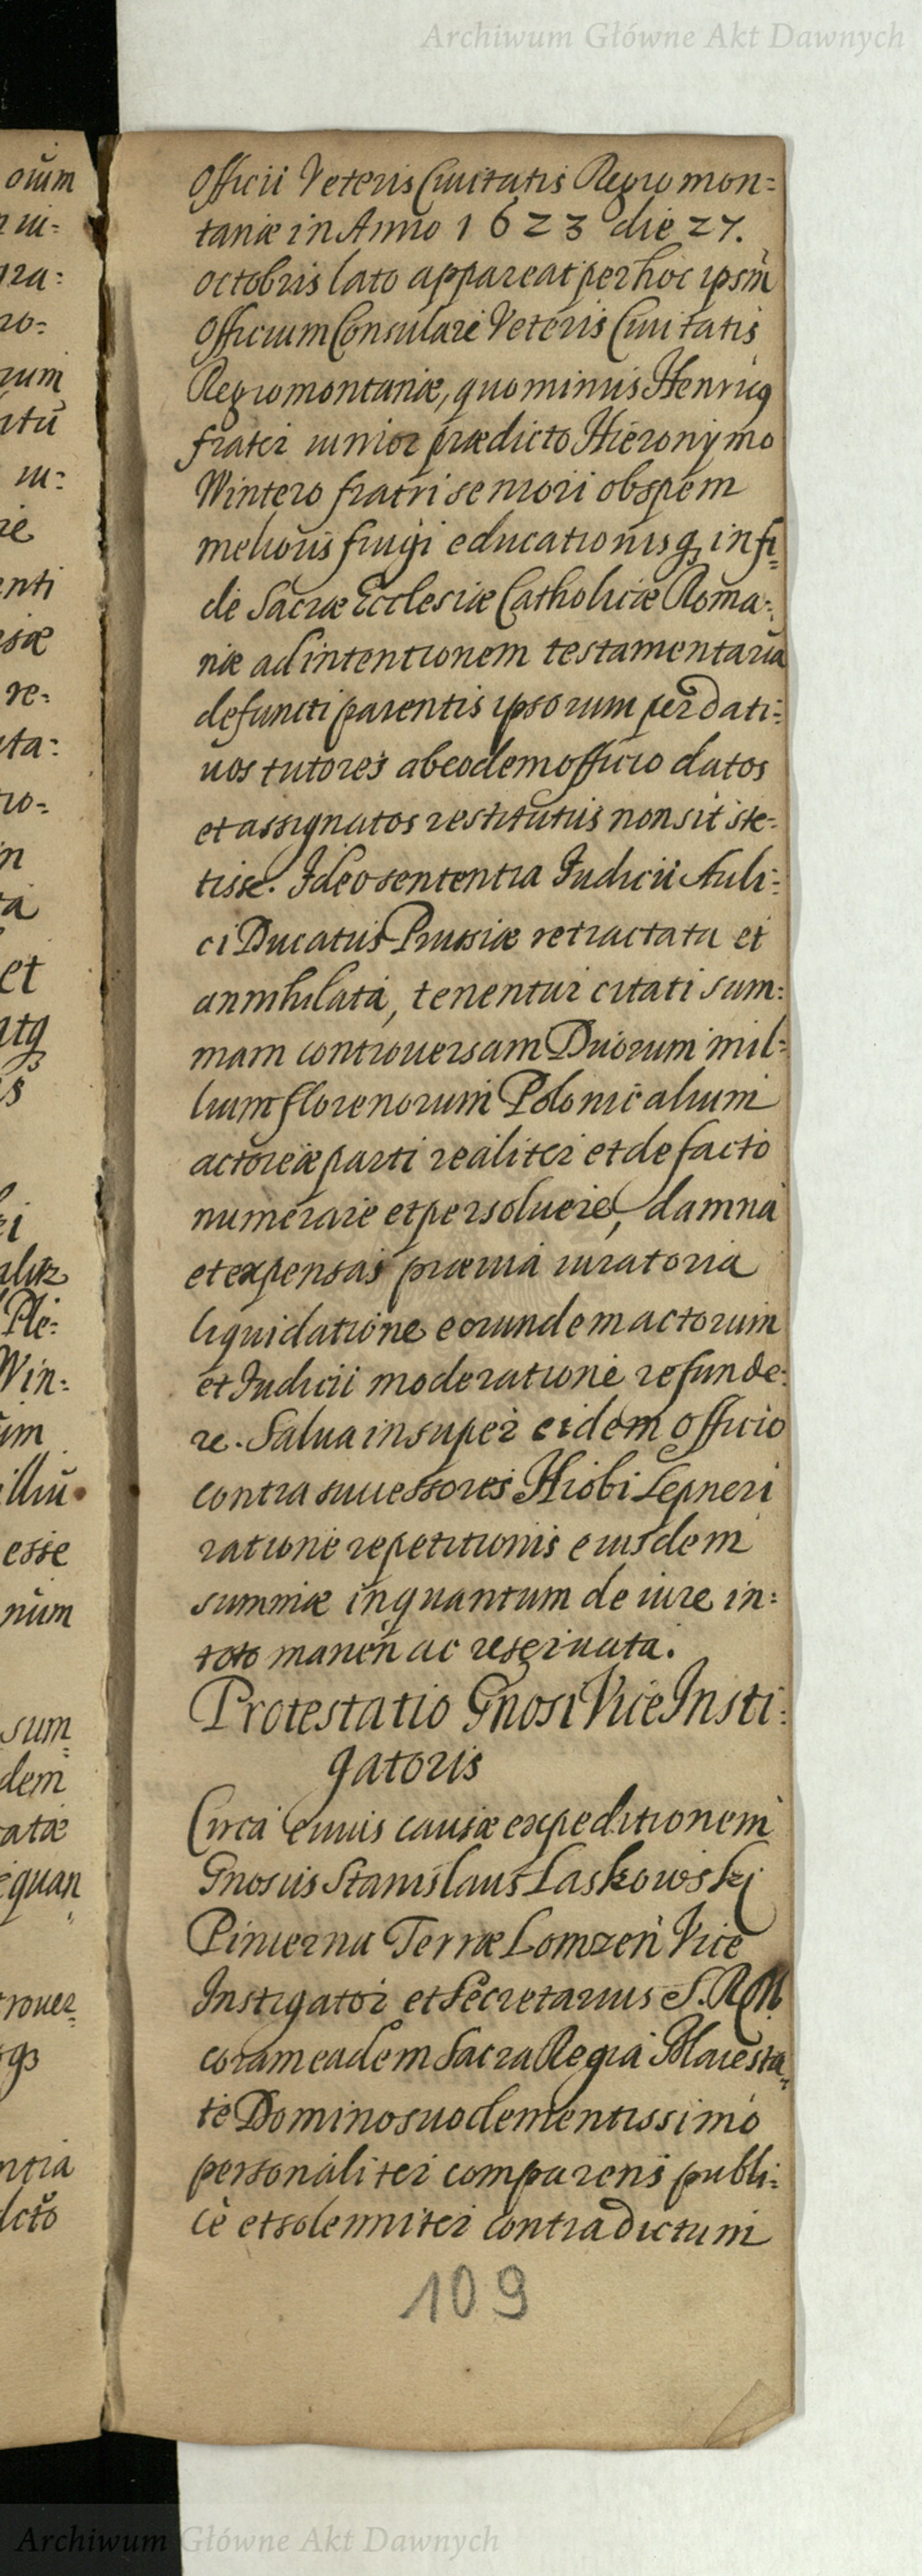 Archiwum Główne Akt Dawnych
Officii Veteris Ciuitatis Regiomon=
taniæ in Anno 1623 die 27.
Octobris lato appareat per hoc ipsm̃
Officium Consulare Veteris Ciuitatis
Regiomontaniæ, quominus Henricq
frater iunior prædicto Hieronymo
Wintero fratri seniori ob spem
melioris frugi educationisq, in fi=
de Sacræ Ecclesiæ Catholicæ Roma=
næ ad intentionem testamentariã
defuncti parentis ipsorum per dati=
uos tutores ab eodem officio datos
et assignatos restitutus non sit ste=
tisse. Ideo sententia Iudicii Auli=
ci Ducatus Prussiæ retractata et
annihilata, tenentur citati sum=
mam controuersam Duorum mil=
lium florenorum Polonicalium
actoreæ parti realiter et de facto
numerare et persoluere, damna
et expensas præuia iuratoria
liquidatione eorundem actorum
et Iudicii moderatione refunde=
re. Salua insuper eidem officio
contra successores Hiobi Lepneri
ratione repetitionis eiusdem
summæ inquantum de iure in=
toto manen̄ ac reseruata.
Protestatio Gnosi Vice Insti=
gatoris
Circa cuius causæ expeditionem
Gnosus Stanislaus Laskowski
Pincerna Terræ Lomzen̄ Vice
Instigator et Secretarius S.R.M.
coram eadem Sacra Regia Maiesta=
te Domino suo clementissimo
personaliter comparens publi=
cè et solenniter contradictum
109
Archiwum Główne Akt Dawnych